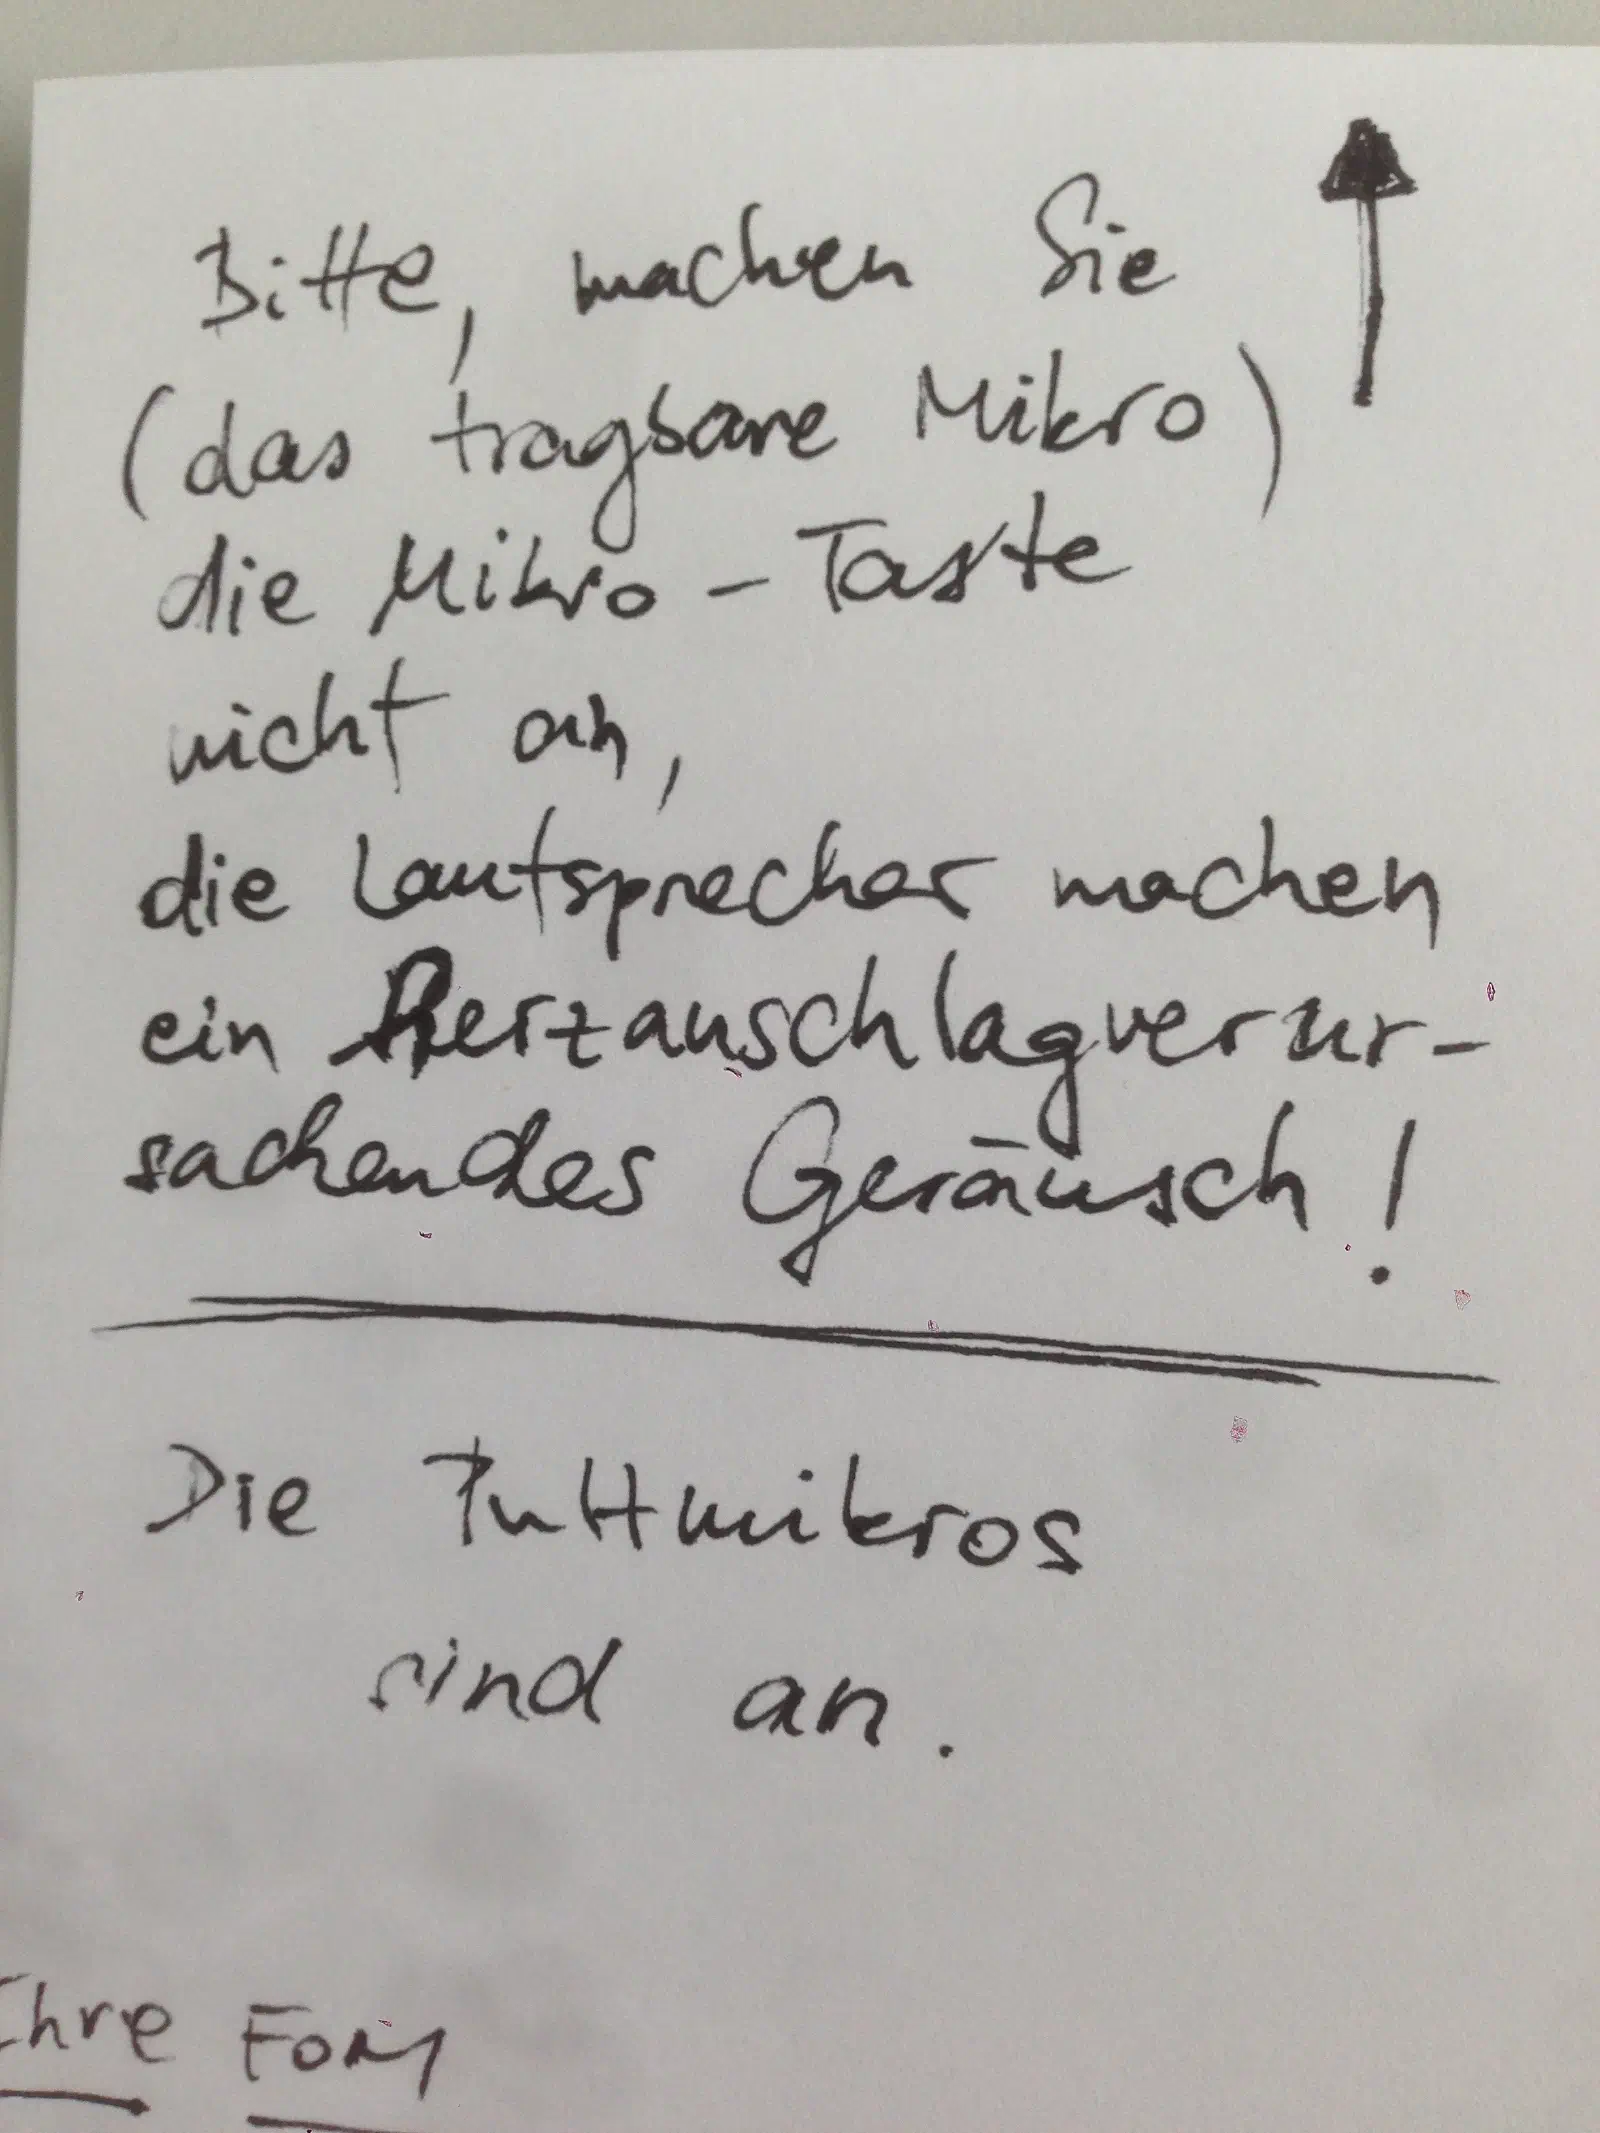 Bitte, machen Sie
(das tragbare Mikro)
die Mikro-Taste
nicht an,
die Lautsprecher machen
ein Herzanschlagverur-
sachendes Geräusch!
Die Pultmikros
sind an.
Ihre Form